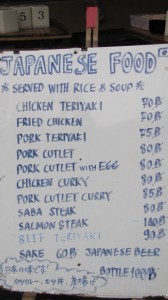 JAPANESE FOOD
* SERVED WITH RICE & SOUP *
CHICKEN TERIYAKI 70฿
FRIED CHICKEN 70฿
PORK TERIYAKI 75฿
PORK CUTLET 80฿
PORK CUTLET WITH EGG 80฿
CHICKEN CURRY 80฿
PORK CUTLET CURRY 85฿
SABA STEAK 80฿
SALMON STEAK 140฿
BEEF TERIYAKI 90฿
SAKE 60฿ JAPANESE BEER
BOTTLE 100฿
日本の味です!